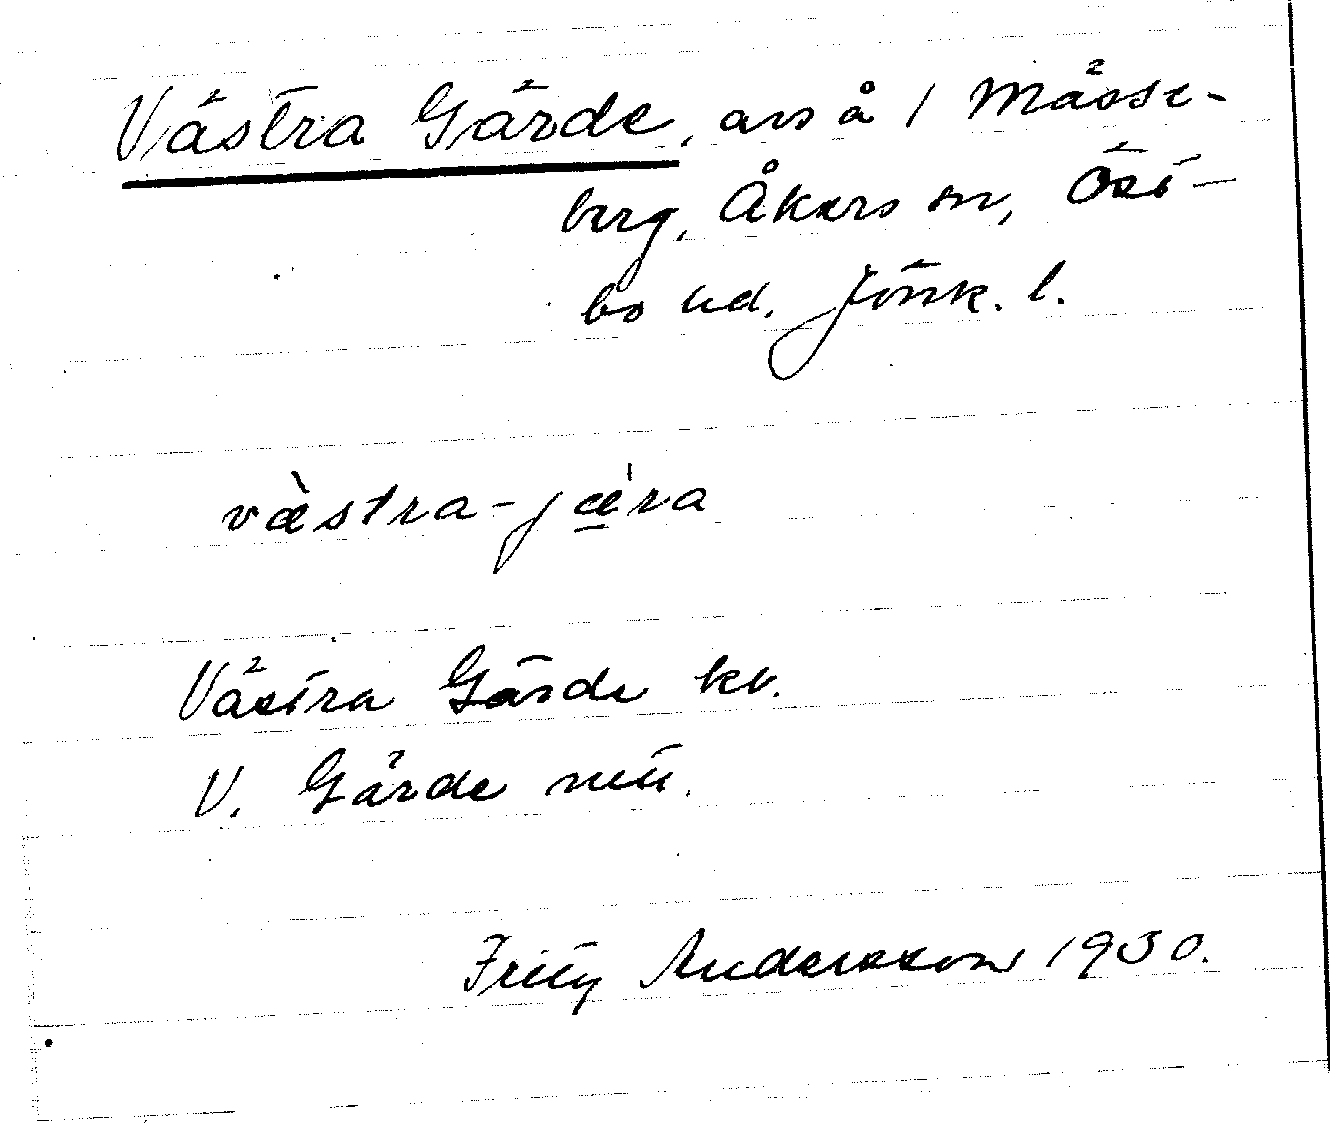 Västra Gärde, avs å 1 Mässe-
berg, Åkers sn, Öst-
bo hd. Jönk. l.
vàstra-jǽra
Västra Gärde kv.
V. Gärde
Fritz Andersson 1930.